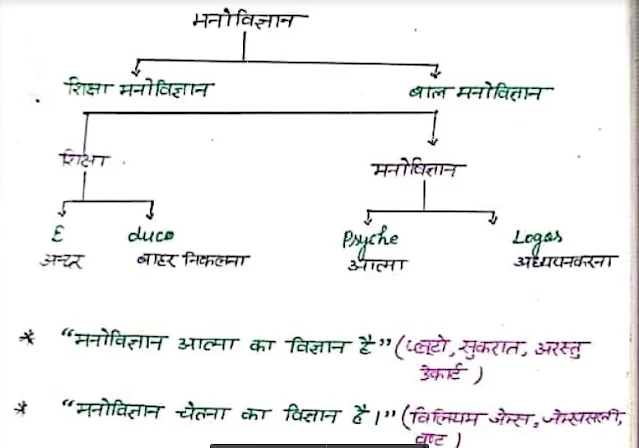 मनोविज्ञान
शिक्षा मनोविज्ञान बाल मनोविज्ञान
शिक्षा
मनोविज्ञान
E duco Psyche Logas
अन्दर बाहर निकलना आत्मा अध्ययनकरना
* “मनोविज्ञान आत्मा का विज्ञान है” (प्लेटो, सुकरात, अरस्तु
डेकार्ट )
* “मनोविज्ञान चेतना का विज्ञान है।” (विलियम जेम्स, जेम्ससली,
वुण्ट )